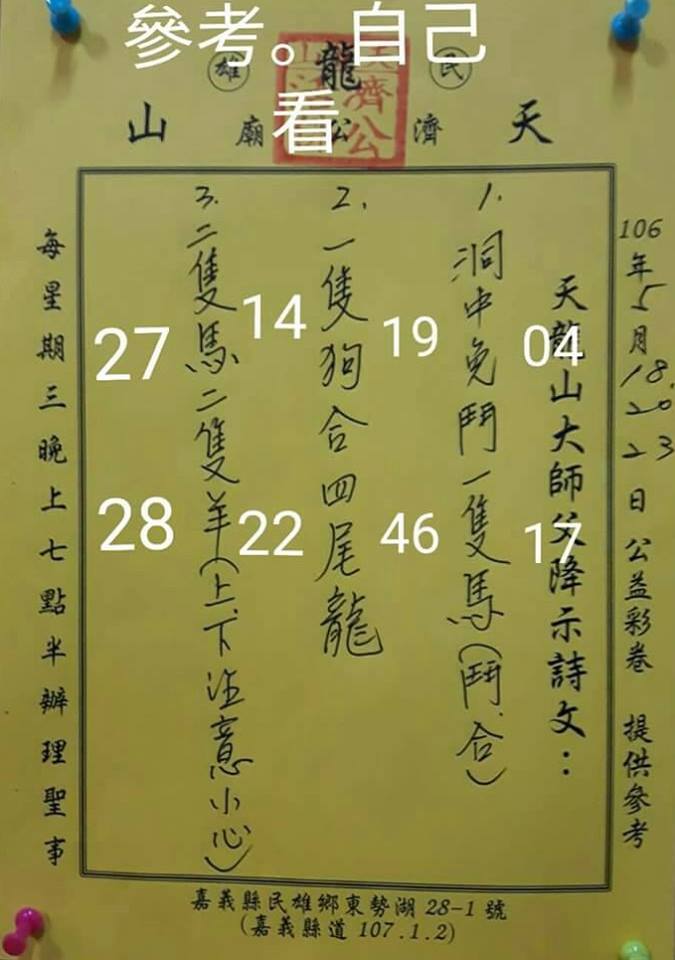 參考。自己
看
民雄
天龍山
濟公廟
106年5月18.20 23日公益彩卷 提供參考
天龍山大師父降示詩文：
1. 洞中免鬥一隻馬(鬥.合)
2. 一隻狗合四尾龍
3. 二隻馬二隻羊(上.下注意小心)
每星期三晚上七點半辦理聖事
27 14 19 04
28 22 46 17
嘉義縣民雄鄉東勢湖 28-1 號
(嘉義縣道 107.1.2)